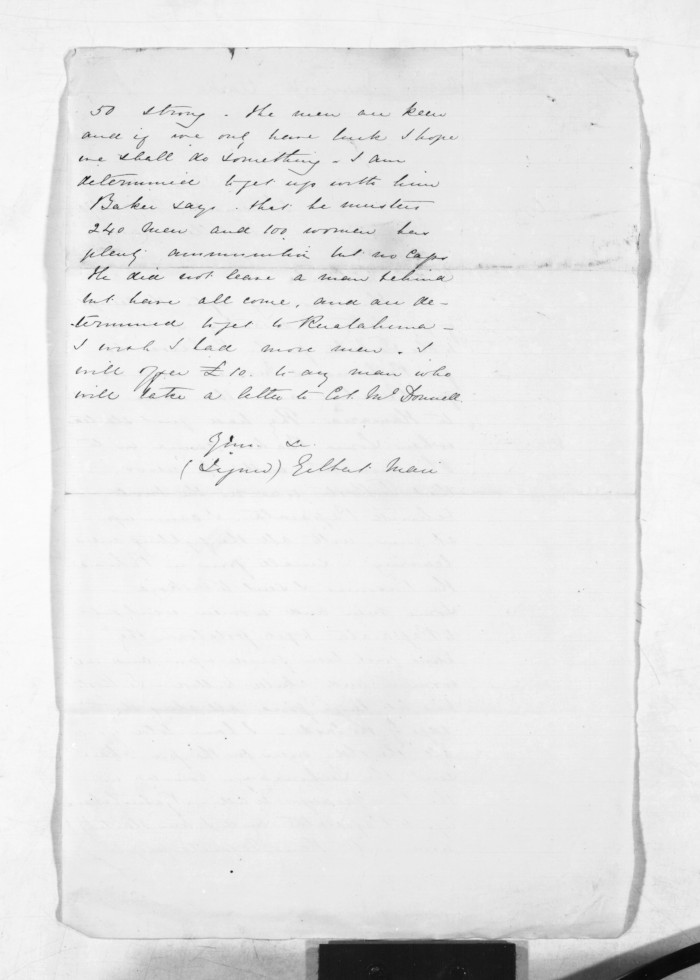 50 strong. the men are keen
and if we only have luck I hope
we shall do something. I am
determined to get up with him
Baker says that he musters
240 men and 100 women has
plenty ammunition but no caps
He did not leave a man behind
but have all come, and are de-
termined to get to Ruatahuna -
I wish I had more men. I
will offer £10. to any man who
will take a letter to Col. McDonnell
Yours &c
(Signed) Gilbert Mair